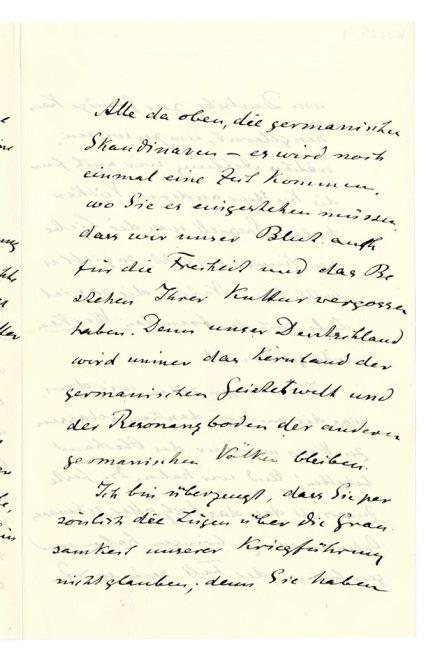 Alle da oben, die germanischen
Skandinaven – es wird noch
einmal eine Zeit kommen,
wo Sie es eingestehen müssen,
dass wir unser Blut auch
für die Freiheit und das Be
stehen Ihrer Kultur vergossen
haben. Denn unser Deutschland
wird immer das Kernland der
germanischen Geisteswelt und
der Resonanzboden der anderen
germanischen Völker bleiben.
Ich bin überzeugt, dass Sie per
sönlich die Lügen über die Grau
samkeit unserer Kriegführung
nicht glauben; denn Sie haben